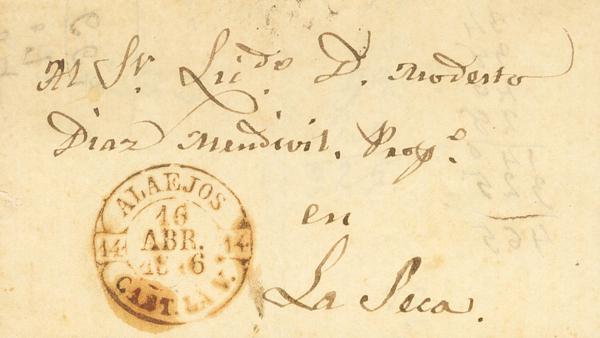 Al Sr. Licdo. D. Modesto
Diaz Mendivil. Propo.
en
La Seca.
ALAEJOS
16
ABR.
1846
14 14
CAST. LA V.